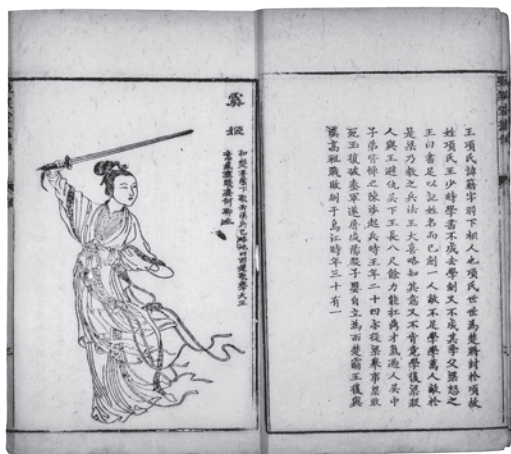 王項氏諱籍字羽下相人也項氏世世為楚將封於項故
姓項氏王少時學書不成去學劍又不成其季父梁怒之
王曰書足以記姓名而已劍一人敵不足學學萬人敵於
是梁乃教之兵法王大喜略知其意又不肯竟學復梁殺
人與王避仇吳下王長八尺餘力能扛鼎才氣過人吳中
子弟皆憚之陳涉起兵時王年二十四從梁舉事梁敗
死王復破秦軍遂屠咸陽殺子嬰自立為西楚霸王復與
漢高祖戰敗刎于烏江時年三十有一
虞姬
和楚垓下歌云漢兵已略地四面楚歌聲大王
意氣盡賤妾何聊生